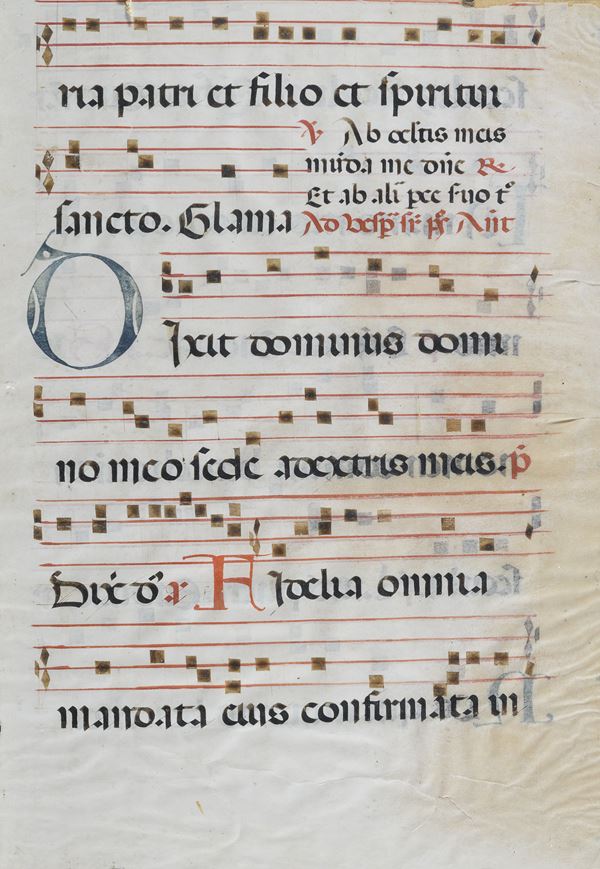 ria patri et filio et spiritui
℣ Ab ocltis meis
mūda me dn̄e ℞.
Et ab ali pce suo t᾽
sancto. Clama Ad vesp̄ ps̄ Añt
Dixit dominus domi
no meo sede adextris meis. p̄
Dix̄ dō ā Fidelia omnia
mandata eius confirmata in